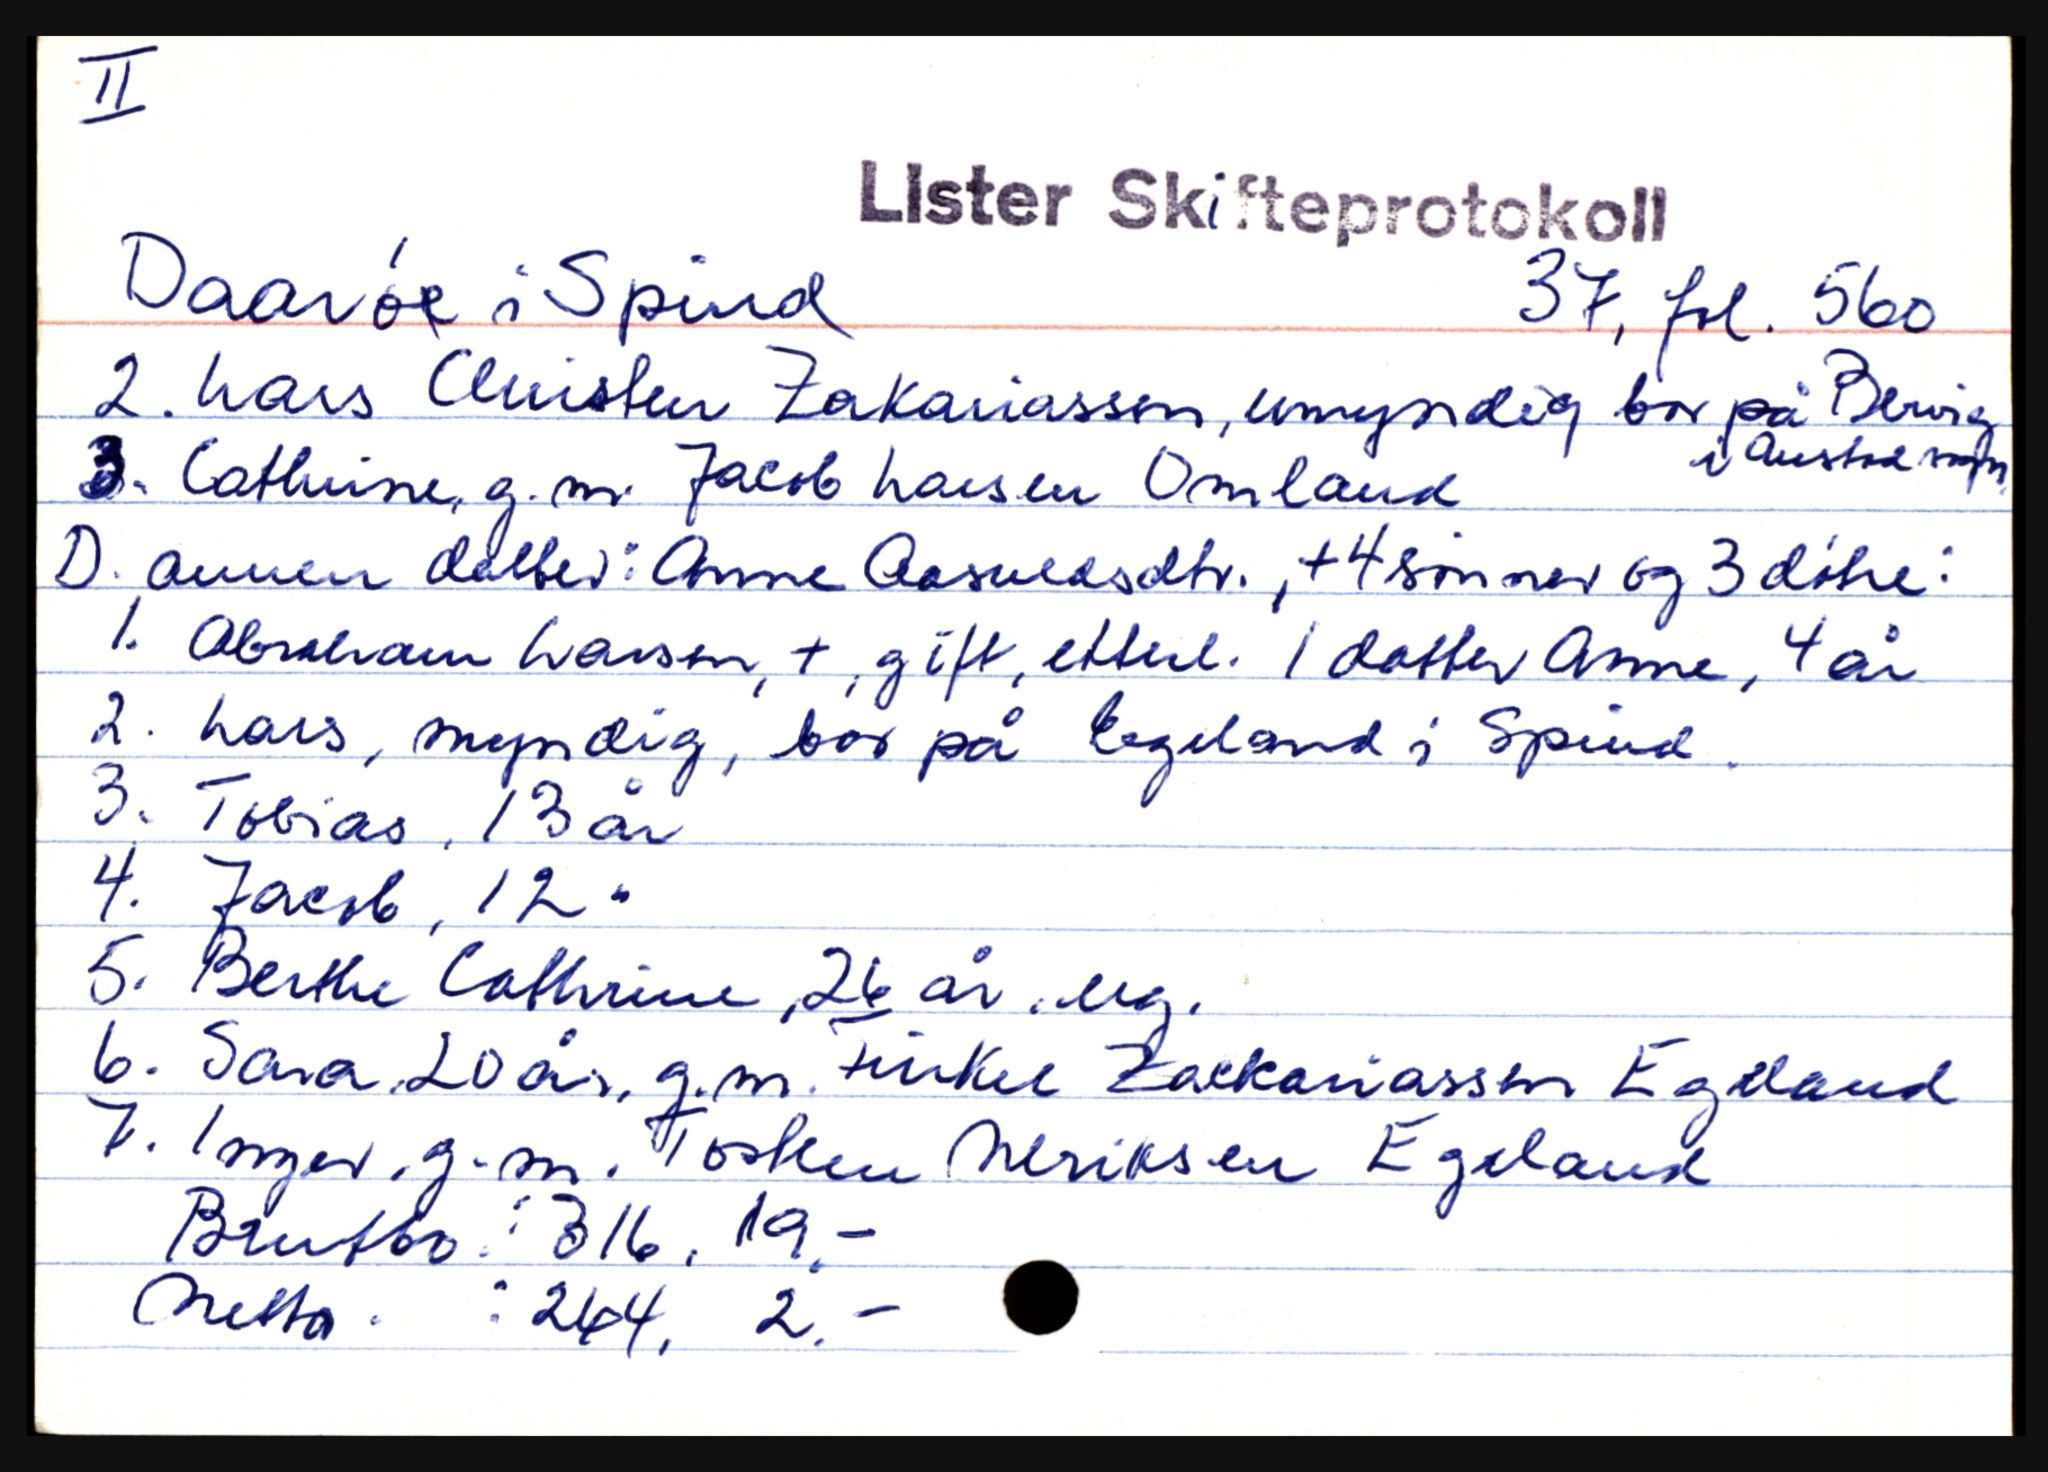 II
LIster Skifteprotokoll
Daarøe i Spind 37, fol. 560
2. Lars Christen Zakariassen, umyndig bor på Bervig
i Austad sogn.
3. Cathrine, g.m. Jacob Larsen Omland
D. annen datter: Anne Aasueldsdtr., + 4 sønner og 3 døtre:
1. Abraham Larsen, +, gift, etterl. 1 datter Anne, 4 år
2. Lars, myndig, bor på Egeland i Spind.
3. Tobias, 13 år
4. Jacob, 12 "
5. Berthe Cathrine, 26 år. ug.
6. Sara, 20 år, g.m. Zackariassen Egeland
7. Inger, g.m. Tosten Neriksen Egeland
Brutto : 316, 19.-
Netto. : 264, 2.-